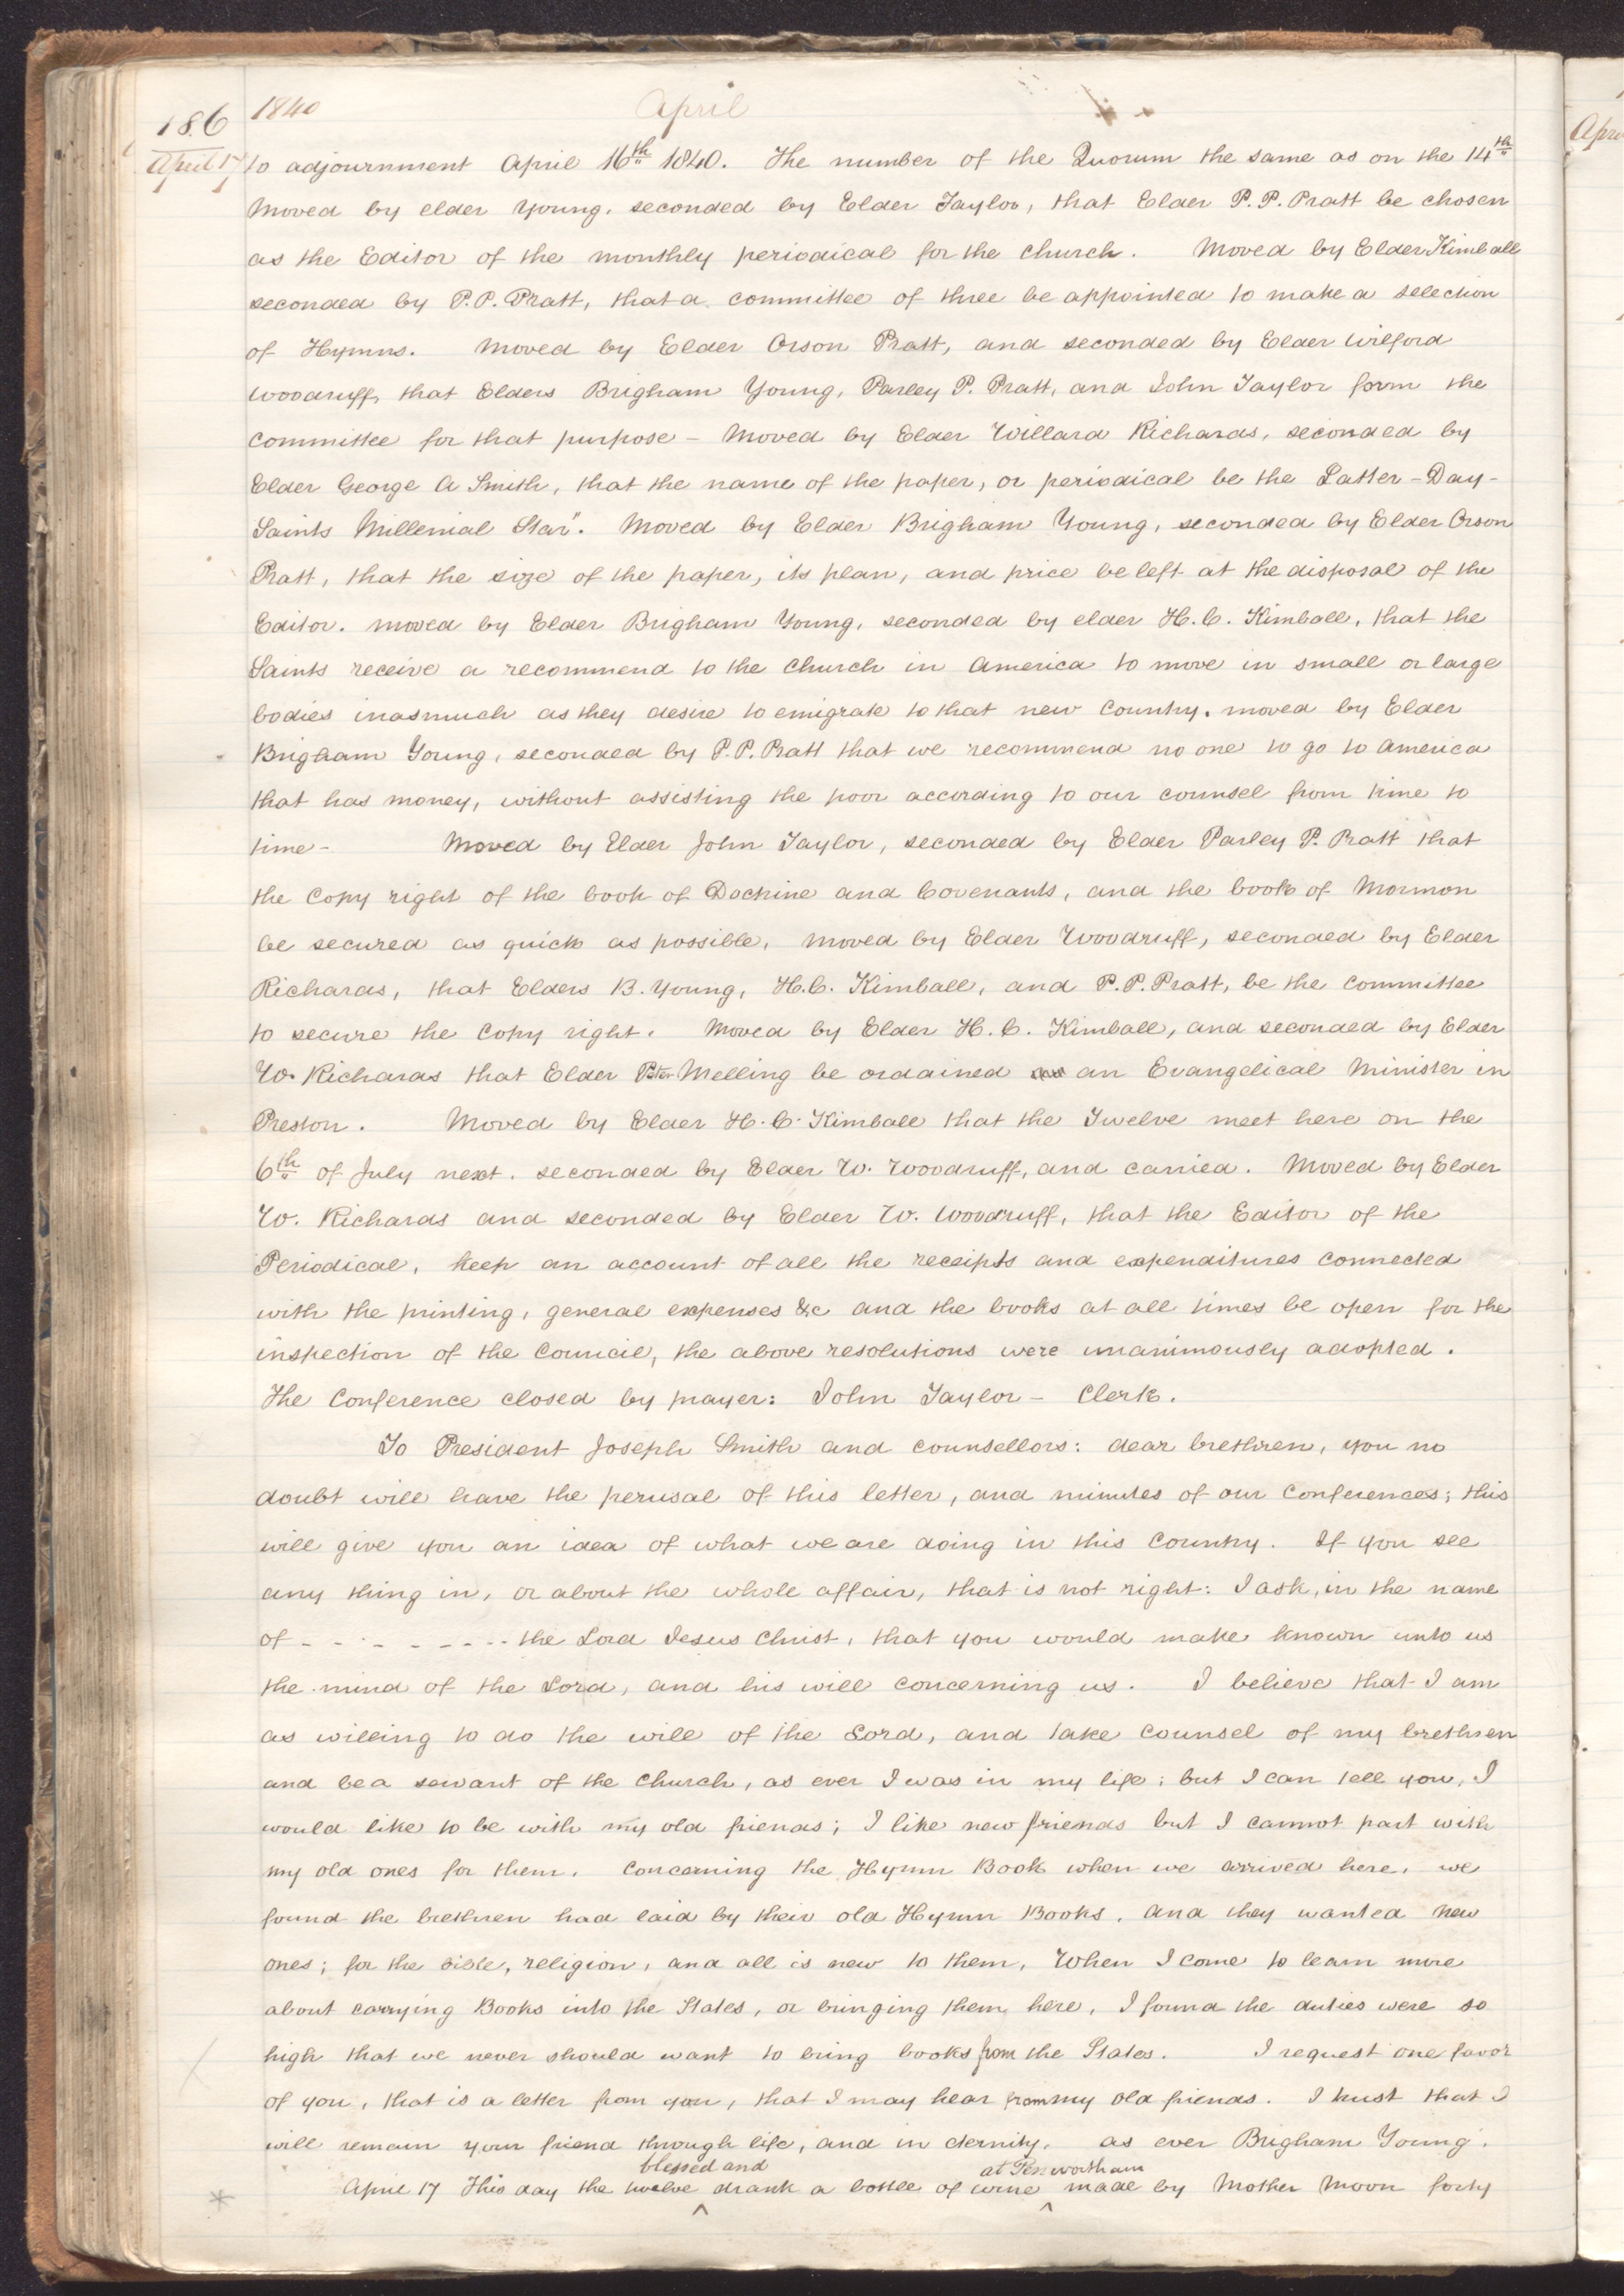 186
1840
April
Apr
April 17
to adjournment April 16th 1840. The number of the Quorum the same as on the 14th
Moved by elder Young, seconded by Elder Taylor, that Elder P. P. Pratt be chosen
as the Editor of the monthly periodical for the church. Moved by Elder Kimball
seconded by P. P. Pratt, that a committee of three be appointed to make a selection
of Hymns. Moved by Elder Orson Pratt, and seconded by Elder Wilford
Woodruff, that Elders Brigham Young, Parley P. Pratt, and John Taylor form the
committee for that purpose - Moved by Elder Willard Richards, seconded by
Elder George A Smith, that the name of the paper, or periodical be the Latter-Day-
Saints Millenial Star". Moved by Elder Brigham Young, seconded by Elder Orson
Pratt, that the size of the paper, its plan, and price be left at the disposal of the
Editor. moved by Elder Brigham Young, seconded by elder H. C. Kimball, that the
Saints receive a recommend to the Church in America to move in small or large
bodies inasmuch as they desire to emigrate to that new country. moved by Elder
Brigham Young, seconded by P. P. Pratt that we recommend no one to go to America
that has money, without assisting the poor according to our counsel from time to
time - Moved by Elder John Taylor, seconded by Elder Parley P. Pratt that
the Copy right of the book of Doctrine and Covenants, and the book of Mormon
be secured as quick as possible, moved by Elder Woodruff, seconded by Elder
Richards, that Elders B. Young, H. C. Kimball, and P. P. Pratt, be the committee
to secure the Copy right. Moved by Elder H. C. Kimball, and seconded by Elder
W. Richards that Elder Peter Melling be ordained an Evangelical Minister in
Preston. Moved by Elder H. C. Kimball that the Twelve meet here on the
6th of July next. seconded by Elder W. Woodruff, and carried. Moved by Elder
W. Richards and seconded by Elder W. Woodruff, that the Editor of the
Periodical, keep an account of all the receipts and expenditures connected
with the printing, general expenses &c and the books at all times be open for the
inspection of the Council, the above resolutions were unanimously adopted.
The Conference closed by prayer: John Taylor - Clerk.
To President Joseph Smith and counsellors: dear brethren, you no
doubt will have the perusal of this letter, and minutes of our Conferences; this
will give you an idea of what we are doing in this country. If you see
any thing in, or about the whole affair, that is not right: I ask, in the name
of - - - - - - - - the Lord Jesus Christ, that you would make known unto us
the mind of the Lord, and his will concerning us. I believe that I am
as willing to do the will of the Lord, and take counsel of my brethren
and be a servant of the church, as ever I was in my life; but I can tell you, I
would like to be with my old friends; I like new friends but I cannot part with
my old ones for them. Concerning the Hymn Book when we arrived here, we
found the brethren had laid by their old Hymn Books, and they wanted new
ones; for the bible, religion, and all is new to them, When I come to learn more
about carrying Books into the States, or bringing them here, I found the duties were so
high that we never should want to bring books from the States. I request one favor
of you, that is a letter from you, that I may hear from my old friends. I trust that I
will remain your friend through life, and in eternity. as ever Brigham Young.
blessed and at Penwortham
April 17 This day the twelve ^ drank a bottle of wine ^ made by Mother Moon forty